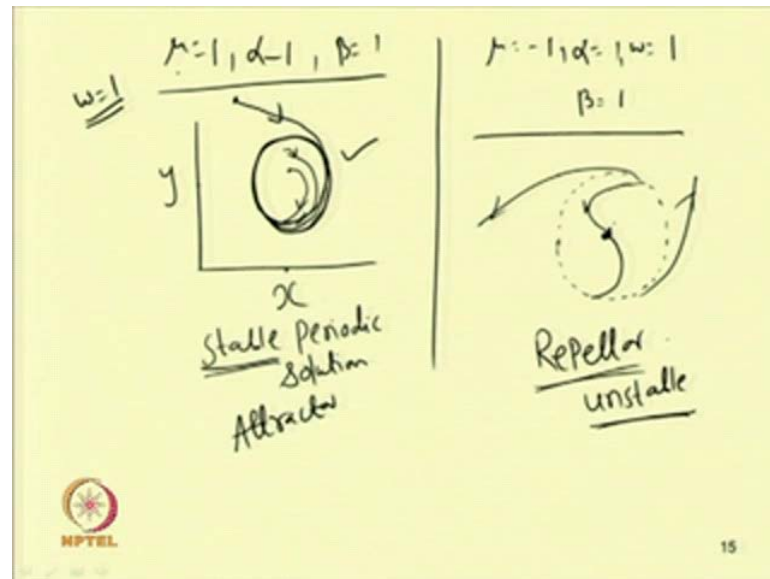 μ=1, α-1, β=1
ω=1
y
x
Stable Periodic
Solution
Attractor
μ=-1, α=1, ω=1
β=1
Repellor
unstable
NPTEL
15